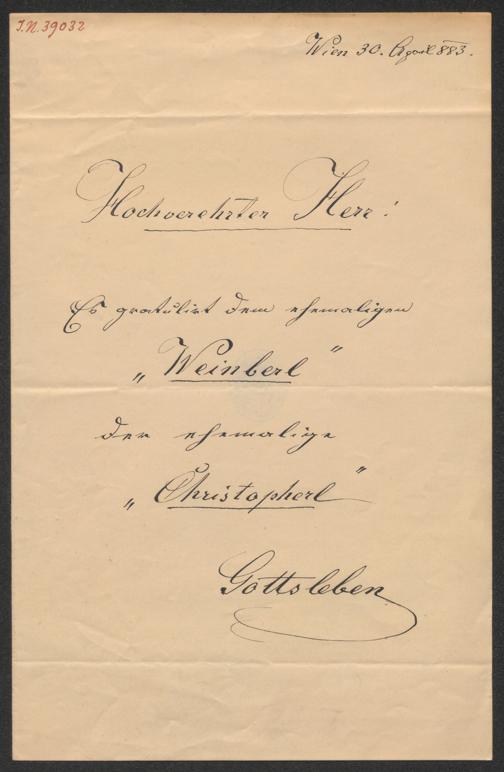 I.N. 39032
Wien 30. April 883.
Hochverehrter Herr!
Es gratulirt dem ehemaligen
„Weinberl”
der ehemalige
„Christopherl”
Gottsleben